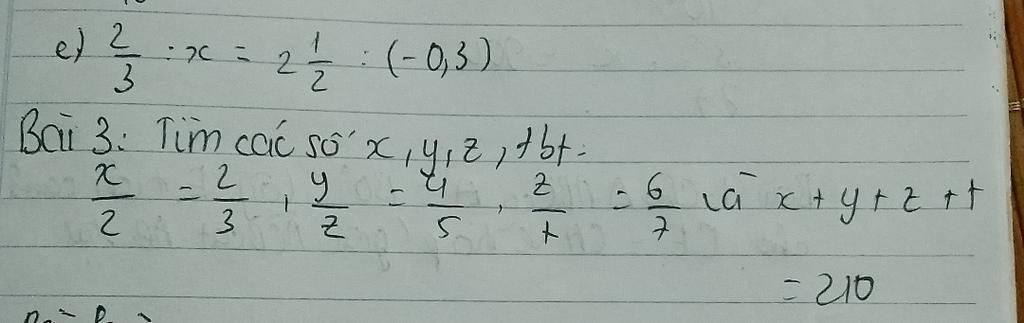 e) 2/3 : x = 2 1/2 : (-0,3)
Bài 3: Tìm các số x, y, z, t bt:
x/2 = 2/3, y/z = 4/5, z/t = 6/7 và x + y + z + t
= 210